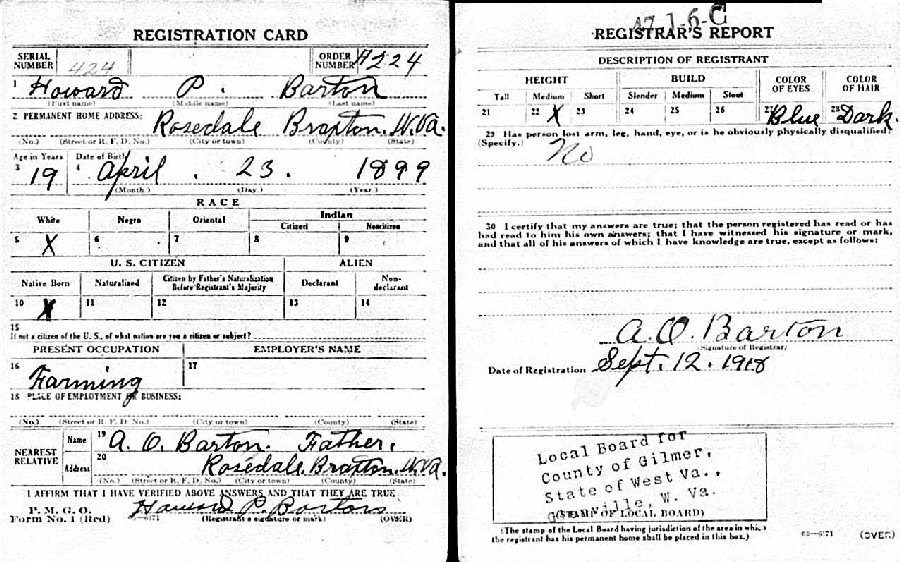 REGISTRATION CARD
SERIAL NUMBER 424 ORDER NUMBER A224
1 Howard P. Barton
(First name) (Middle name) (Last name)
2 PERMANENT HOME ADDRESS: Rosedale Braxton. W.Va.
(No.) (Street or R. F. D. No.) (City or town) (County) (State)
Age in Years Date of Birth
3 19 4 April . 23. 1899
(Month.) (Day.) (Year.)
RACE
White Negro Oriental Indian
Citizen Noncitizen
5 X 6 7 8 9
U. S. CITIZEN ALIEN
Native Born Naturalized Citizen by Father's Naturalization Before Registrant's Majority Declarant Non-declarant
10 X 11 12 13 14
15
If not a citizen of the U. S., of what nation are you a citizen or subject?
PRESENT OCCUPATION EMPLOYER'S NAME
16 Farming 17
18 PLACE OF EMPLOYMENT OR BUSINESS:
(No.) (Street or R. F. D. No.) (City or town) (County) (State)
NEAREST RELATIVE Name 19 A. O. Barton. Father,
Address 20 Rosedale. Braxton. W.Va.
(No.) (Street or R. F. D. No.) (City or town) (County) (State)
I AFFIRM THAT I HAVE VERIFIED ABOVE ANSWERS AND THAT THEY ARE TRUE
P. M. G. O.
Form No. 1 (Red) Howard P. Barton
(Registrant's signature or mark) (OVER)
47-1-6-C
REGISTRAR'S REPORT
DESCRIPTION OF REGISTRANT
HEIGHT BUILD COLOR OF EYES COLOR OF HAIR
Tall Medium Short Slender Medium Stout
21 22 X 23 24 25 26 27 Blue 28 Dark.
29 Has person lost arm, leg, hand, eye, or is he obviously physically disqualified?
(Specify.) No
30 I certify that my answers are true; that the person registered has read or has
had read to him his own answers; that I have witnessed his signature or mark,
and that all of his answers of which I have knowledge are true, except as follows:
A. O. Barton
(Signature of Registrar)
Date of Registration Sept. 12. 1918
Local Board for
County of Gilmer,
State of West Va.,
W. Va.
(STAMP OF LOCAL BOARD)
(The stamp of the Local Board having jurisdiction of the area in which
the registrant has his permanent home shall be placed in this box.)
(OVER)